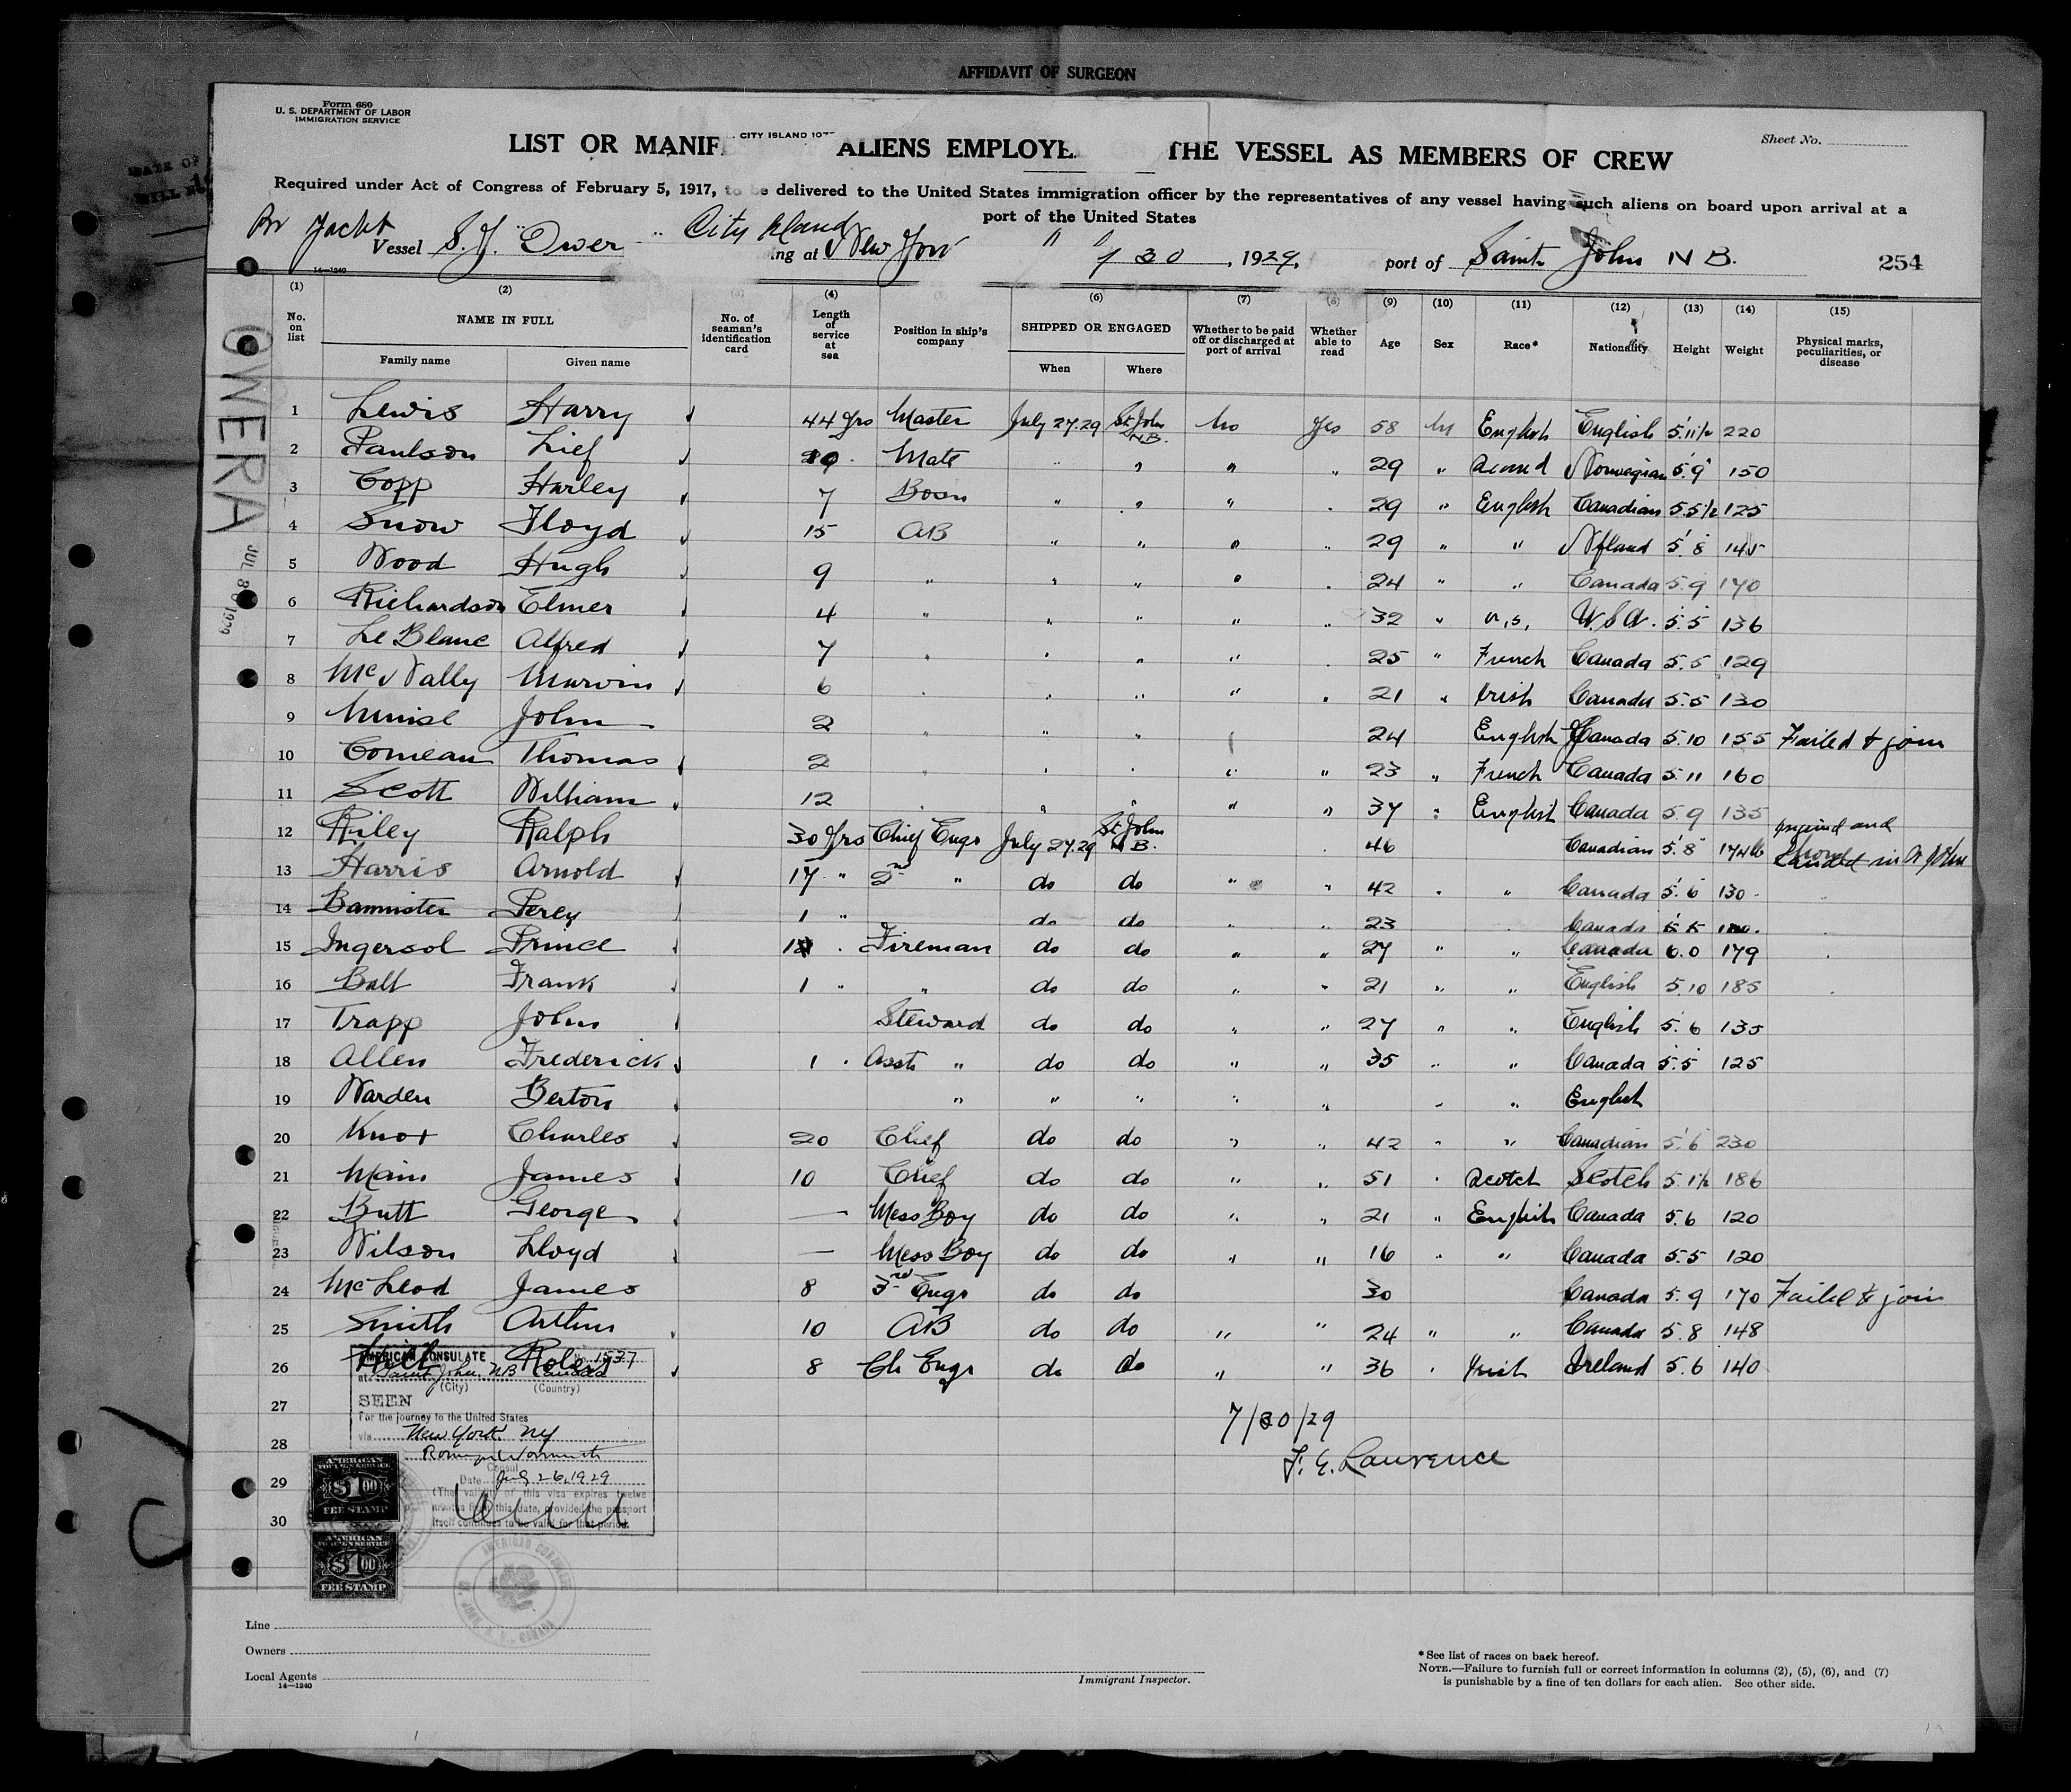 AFFIDAVIT OF SURGEON
Form 680
U. S. DEPARTMENT OF LABOR
IMMIGRATION SERVICE
CITY ISLAND
Sheet No.
LIST OR MANIF ALIENS EMPLOYE ON THE VESSEL AS MEMBERS OF CREW
Required under Act of Congress of February 5, 1917, to be delivered to the United States immigration officer by the representatives of any vessel having such aliens on board upon arrival at a
port of the United States
Br Yacht City Island
Vessel S.Y. Ower ng at New York 7 30, 1929, port of Saint John N B. 254
14—1240
(1) (2) (3) (4) (5) (6) (7) (8) (9) (10) (11) (12) (13) (14) (15)
No. on list NAME IN FULL No. of seaman's identification card Length of service at sea Position in ship's company SHIPPED OR ENGAGED Whether to be paid off or discharged at port of arrival Whether able to read Age Sex Race* Nationality Height Weight Physical marks, peculiarities, or disease
Family name Given name When Where
OWERA
1 Lewis Harry 44 yrs Master July 27.29 St John N.B. No Yes 58 M English English 5.11½ 220
2 Paulson Lief Mate " " " " 29 " Scand Norwegian 5.9 150
3 Copp Harley 7 Bosn " " " " 29 " English Canadian 5.5½ 125
4 Snow Floyd 15 AB " " " " 29 " " Nfland 5.8 145
5 Wood Hugh 9 " " " " " 24 " " Canada 5.9 170
6 Richardson Elmer 4 " " " " " 32 " U.S. U.S.A. 5.5 136
7 Le Blanc Alfred 7 " " " " " 25 " French Canada 5.5 129
8 McNally Marvin 6 " " " " " 21 " Irish Canada 5.5 130
9 Muise John 2 " " " 24 English Canada 5.10 155 Failed to join
10 Comeau Thomas 2 " " " " " 23 " French Canada 5.11 160
11 Scott William 12 " " " " " 37 " English Canada 5.9 135
12 Riley Ralph 30 Yrs Chief Engr July 27.29 St John N B. 46 Canadian 5.8 and in St John
13 Harris Arnold 17 " 2nd " do do " " 42 " " Canada 5.6 130
14 Bannister Percy 1 " do do " 23 Canada
15 Ingersol Prince Fireman do do " " 27 " " Canada 6.0 179
16 Balt Frank 1 " " do do " " 21 " " English 5.10 185
17 Trapp John Steward do do " " 27 " " English 5.6 135
18 Allen Frederick 1 " Asst " do do " " 35 " " Canada 5.5 125
19 Warden Berton " " " " " " " English
20 Knox Charles 20 Chef do do " " 42 " " Canadian 5.6 230
21 Main James 10 Chief do do " " 51 " Scotch Scotch 5.1½ 186
22 Butt George — Mess Boy do do " " 21 " English Canada 5.6 120
23 Wilson Lloyd — Mess Boy do do " " 16 " " Canada 5.5 120
24 McLeod James 8 3rd Engr do do 30 Canada 5.9 170 Failed to join
25 Smith Arthur 10 AB do do " " 24 " " Canada 5.8 148
26 Robert 8 Ch Engr do do " " 36 " Irish Ireland 5.6 140
27
28
29
30
AMERICAN CONSULATE No. 1537
at Saint John, N B Canada
(City) (Country)
SEEN
For the journey to the United States
via New York NY
Consul
Date July 26, 1929
(The validity of this visa expires twelve
months from this date, provided the passport
itself continues to be valid for that period.
7/30/29
F. E. Lawrence
AMERICAN
FOREIGN SERVICE
$1.00
FEE STAMP
AMERICAN
FOREIGN SERVICE
$1.00
FEE STAMP
Line
Owners
Local Agents
14—1240
Immigrant Inspector.
*See list of races on back hereof.
NOTE.—Failure to furnish full or correct information in columns (2), (5), (6), and (7)
is punishable by a fine of ten dollars for each alien. See other side.